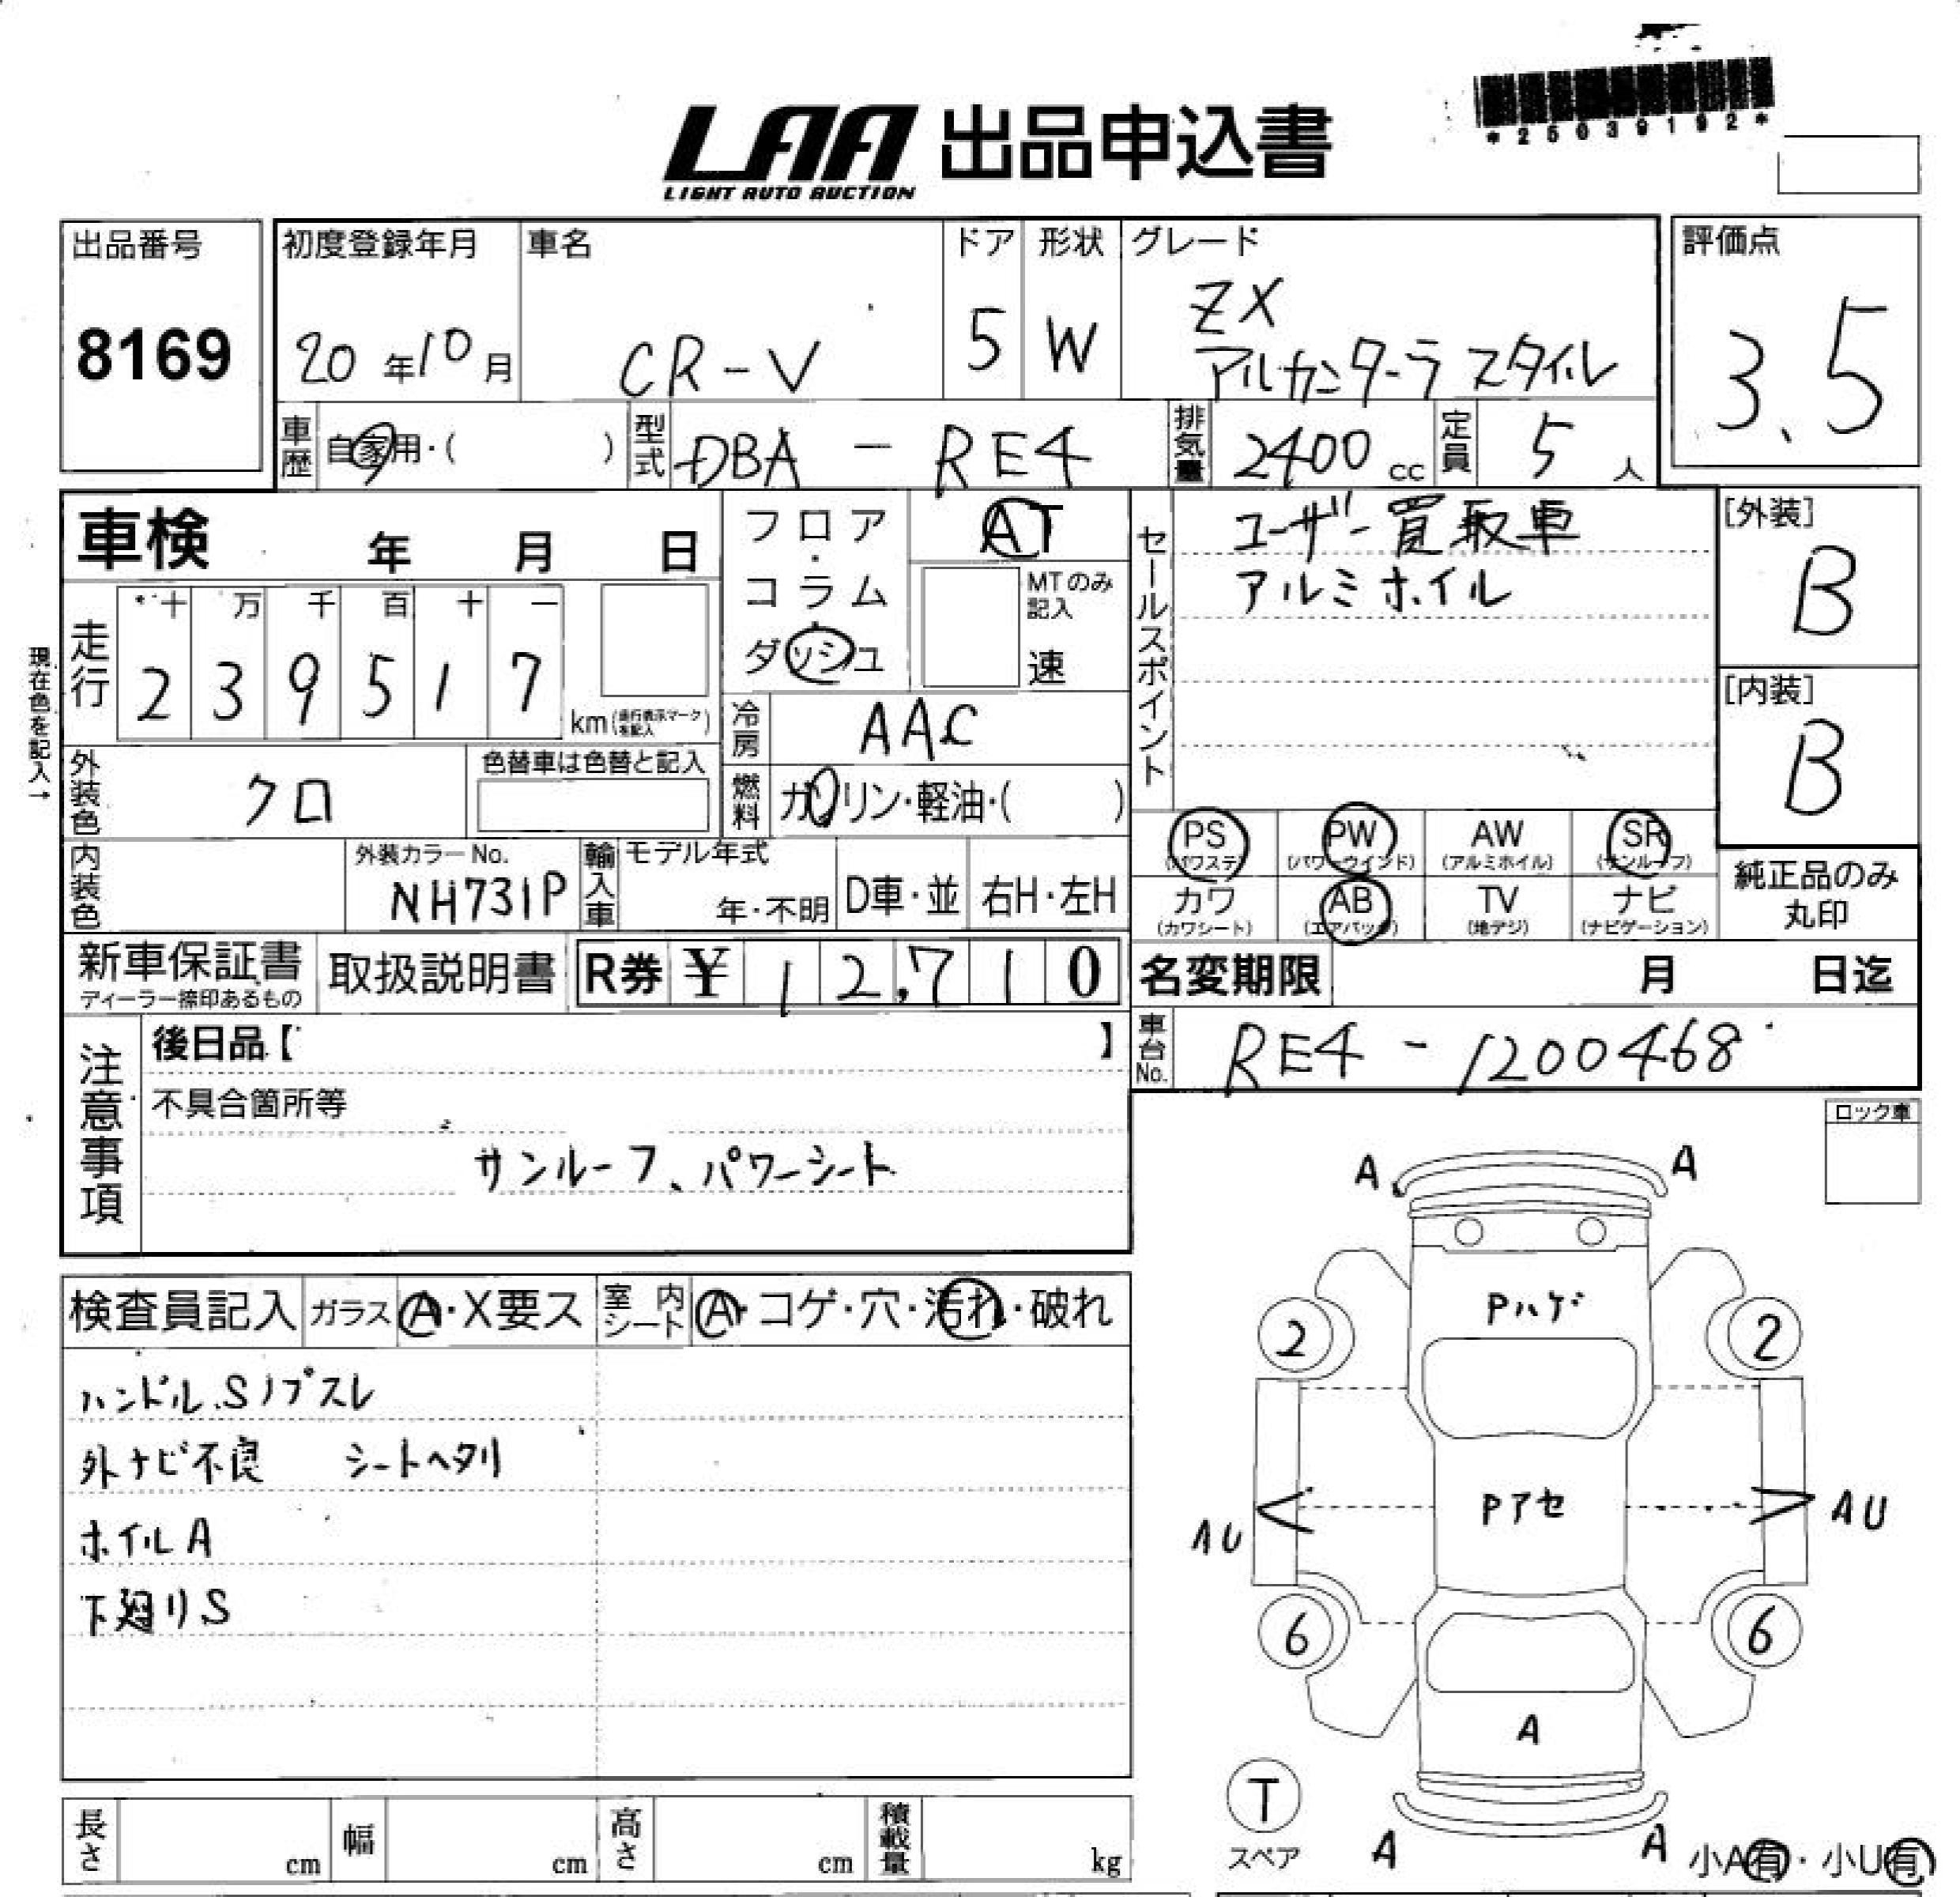 *25039192*
LAA 出品申込書
LIGHT AUTO AUCTION
出品番号
8169
初度登録年月
20年10月
車名
CR-V
ドア
5
形状
W
グレード
ZX
アルカンターラ スタイル
評価点
3.5
車歴
自家用・( )
型式
DBA - RE4
排気量
2400 cc
定員
5 人
車検 年 月 日
フロア・コラム・ダッシュ
AT
MTのみ記入
速
セールスポイント
ユーザー買取車
アルミホイル
[外装]
B
[内装]
B
現在色を記入→
走行
十 万 千 百 十 一
2 3 9 5 1 7
km(走行表示マークを記入)
冷房
AAC
外装色
クロ
色替車は色替と記入
燃料
ガソリン・軽油・( )
内装色
外装カラーNo.
NH731P
輸入車
モデル年式
年・不明
D車・並
右H・左H
PS
(パワステ)
PW
(パワーウインド)
AW
(アルミホイル)
SR
(サンルーフ)
カワ
(カワシート)
AB
(エアバック)
TV
(地デジ)
ナビ
(ナビゲーション)
純正品のみ
丸印
新車保証書
ディーラー捺印あるもの
取扱説明書
R券 ¥ 12,710
名変期限 月 日迄
車台No.
RE4 - 1200468
注意事項
後日品【 】
不具合箇所等
サンルーフ、パワーシート
ロック車
検査員記入
ガラス
A・X要ス
室内シート
A・コゲ・穴・汚れ・破れ
ハンドル.Sノブスレ
外ナビ不良 シートヘタリ
ホイルA
下廻りS
A A
Pハゲ
2 2
Pアセ
AU AU
6 6
A
T
スペア
A A
小A有・小U有
長さ cm
幅 cm
高さ cm
積載量 kg